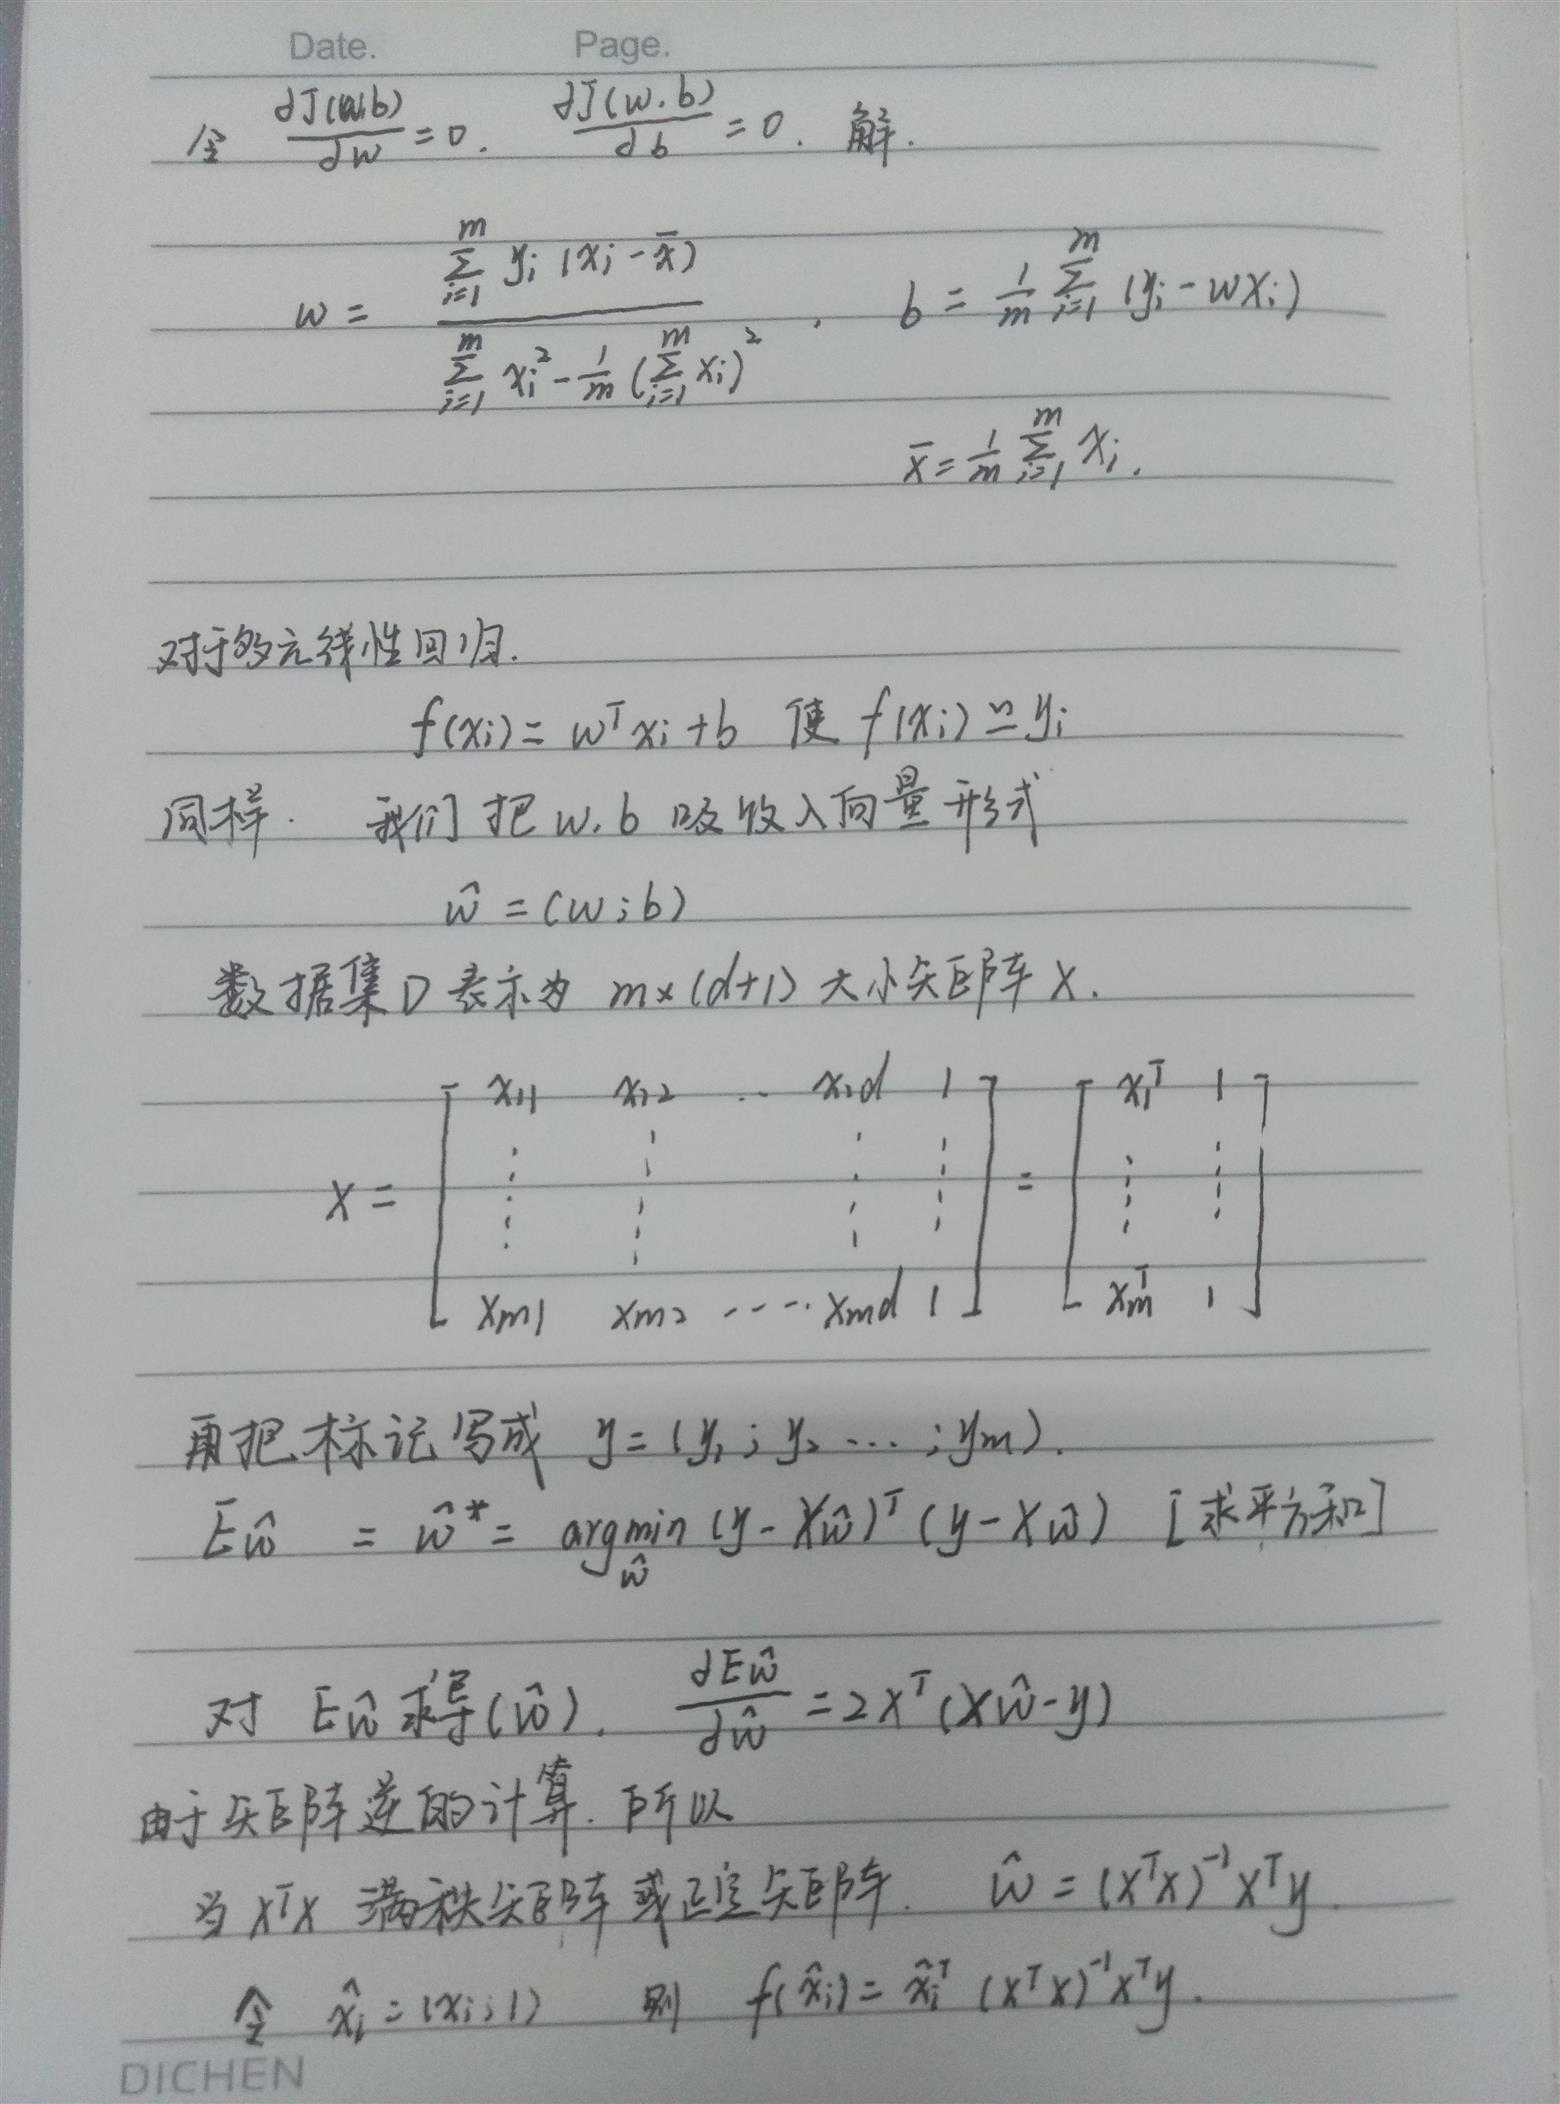 Date. Page.
令 ∂J(w,b)/∂w = 0. ∂J(w.b)/∂b = 0. 解.
w = (∑_{i=1}^{m} y_i (x_i - x̄)) / (∑_{i=1}^{m} x_i^2 - 1/m (∑_{i=1}^{m} x_i)^2) , b = 1/m ∑_{i=1}^{m} (y_i - wx_i)
x̄ = 1/m ∑_{i=1}^{m} x_i.
对于多元线性回归.
f(x_i) = w^T x_i + b 使 f(x_i) ≃ y_i
同样. 我们把 w.b 吸收入向量形式
ŵ = (w;b)
数据集D表示为 m×(d+1) 大小矩阵 X.
X = [ x_11 x_12 ... x_1d 1 ; ⋮ ⋮ ⋮ ⋮ ; x_m1 x_m2 ..... x_md 1 ] = [ x_1^T 1 ; ⋮ ⋮ ; x_m^T 1 ]
再把标记写成 y = (y_1 ; y_2 ... ; y_m).
Eŵ = ŵ* = argmin_ŵ (y - Xŵ)^T (y - Xŵ) [求平方和]
对 Eŵ 求导(ŵ). ∂Eŵ/∂ŵ = 2X^T (Xŵ - y)
由于矩阵逆的计算. 所以
当 X^T X 满秩矩阵或正定矩阵. ŵ = (X^T X)^{-1} X^T y.
令 x̂_i = (x_i ; 1) 则 f(x̂_i) = x̂_i^T (X^T X)^{-1} X^T y.
DICHEN